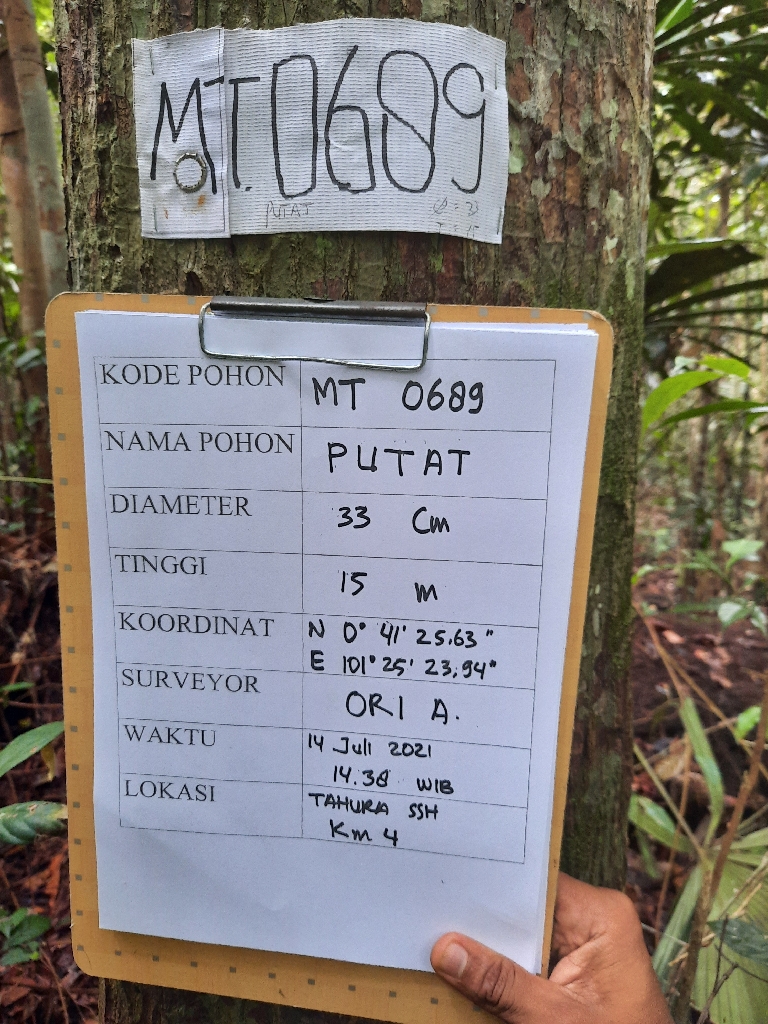 MT.0689
PUTAT
KODE POHON MT 0689
NAMA POHON PUTAT
DIAMETER 33 Cm
TINGGI 15 m
KOORDINAT N 0° 41' 25,63"
E 101° 25' 23,94"
SURVEYOR ORI A.
WAKTU 14 Juli 2021
14.38 WIB
LOKASI TAHURA SSH
Km 4